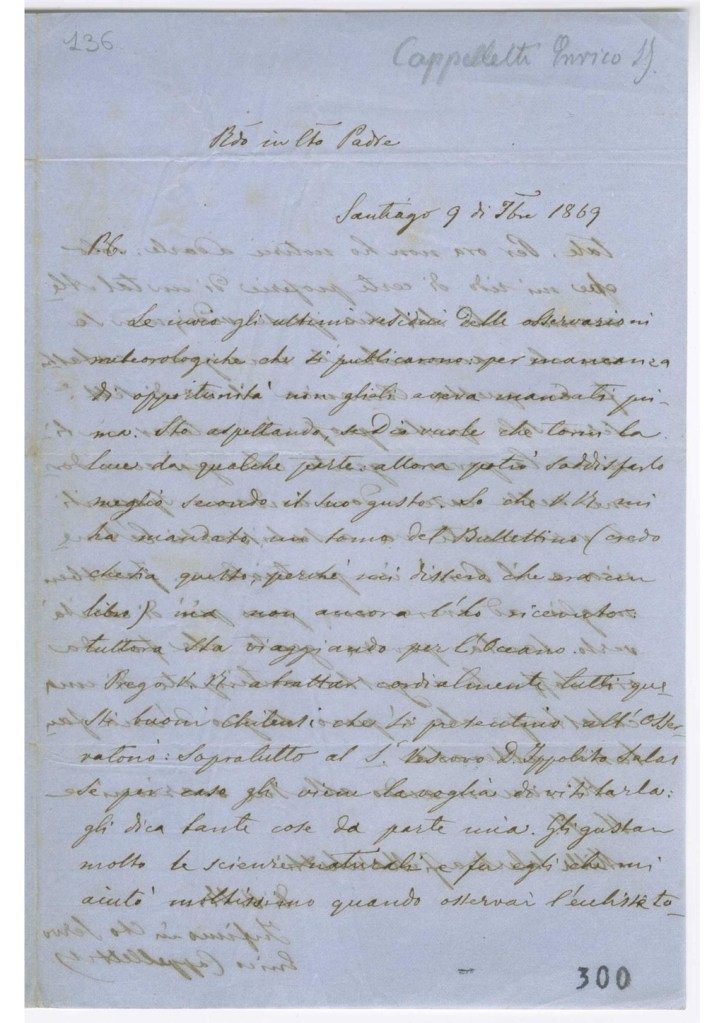 136
Cappelletti Enrico SJ.
Rdo in Cto Padre
Santiago 9 di 7bre 1869
P.C.
Le invio gli ultimi residui delle osservazioni
meteorologiche che si publicarono: per mancanza
di opportunità non glieli aveva mandati pri-
ma. Sto aspettando, se Dio vuole che torni la
luce da qualche parte: allora potrò soddisfarlo
meglio secondo il suo gusto. So che V.R. mi
ha mandato un tomo del Bullettino (credo
che sia questo, perchè mi dissero che era un
libro) ma non ancora l'ho ricevuto:
tuttora sta viaggiando per l'Oceano.
Prego V.R. a trattar cordialmente tutti que-
sti buoni Chilensi che si presentino all'Osser-
vatorio: Sopratutto al S. Vescovo D. Ippolito Salas
Se per caso gli viene la voglia di visitarla:
gli dica tante cose da parte mia. Gli gustan
molto le scienze naturali e fu egli che mi
aiutò moltissimo quando osservai l'eclisse to-
300